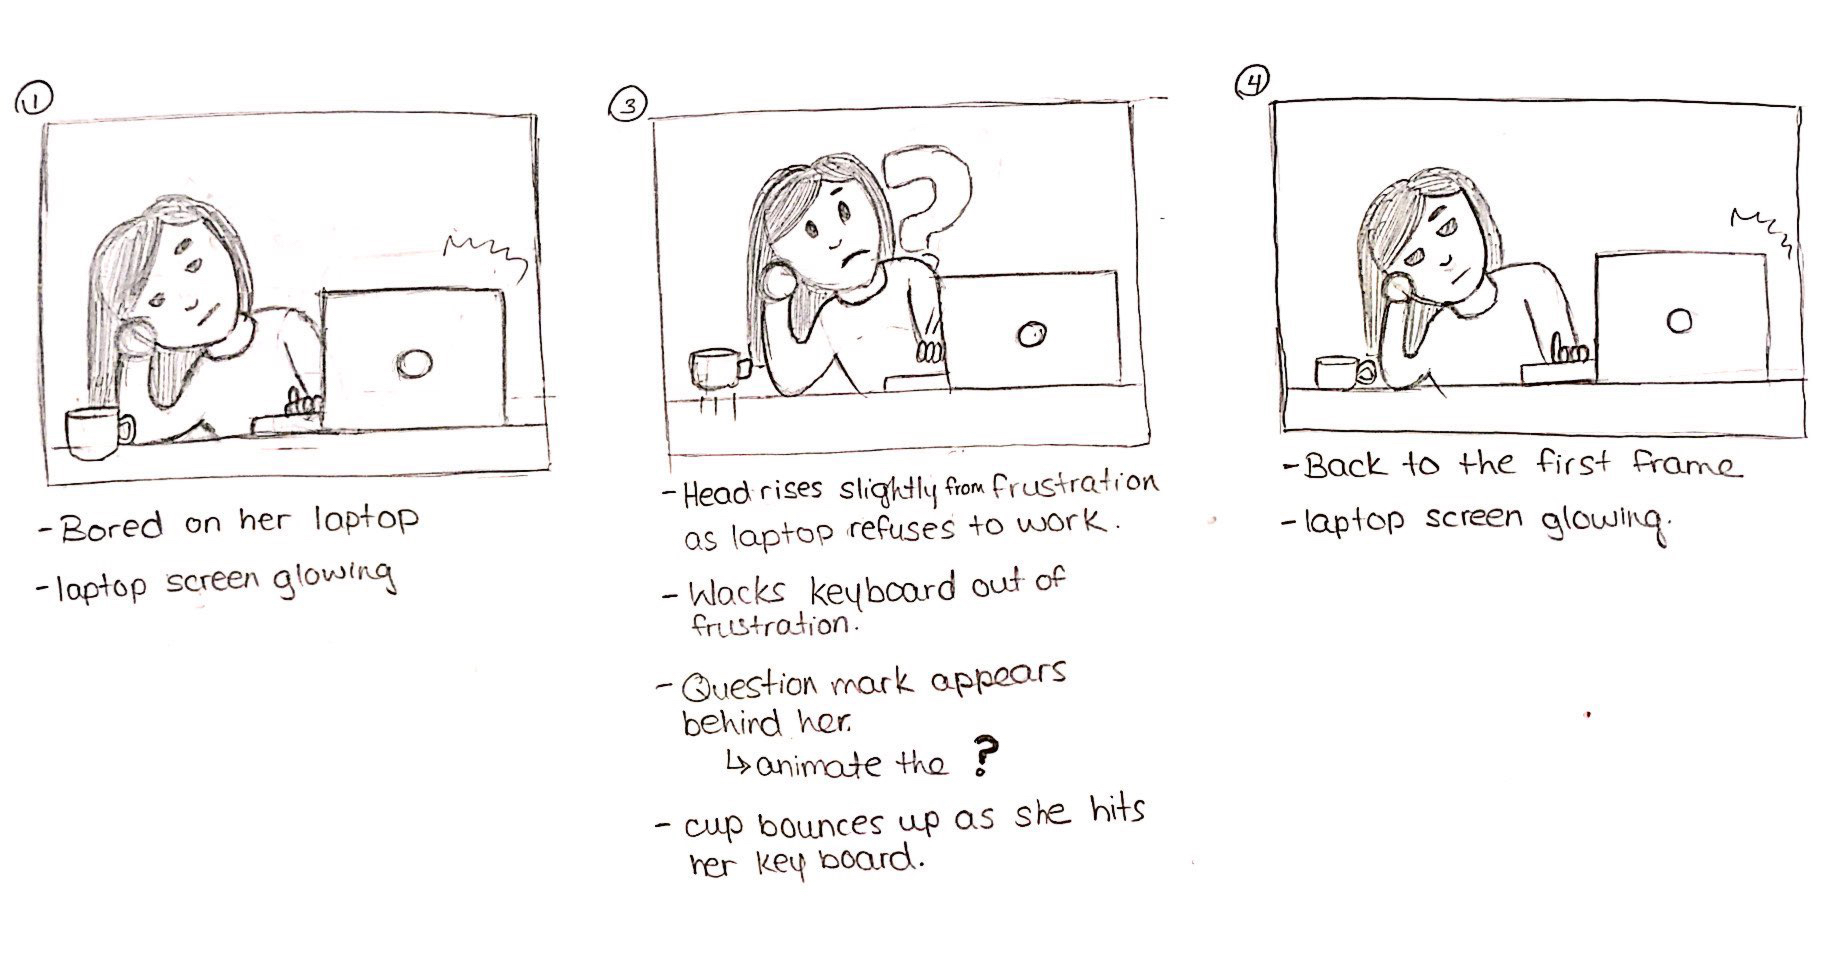 1
- Bored on her laptop
- laptop screen glowing
3
- Head rises slightly from frustration
as laptop refuses to work.
- Wacks keyboard out of
frustration.
- Question mark appears
behind her.
↳ animate the ?
- cup bounces up as she hits
her key board.
4
- Back to the first frame
- laptop screen glowing.